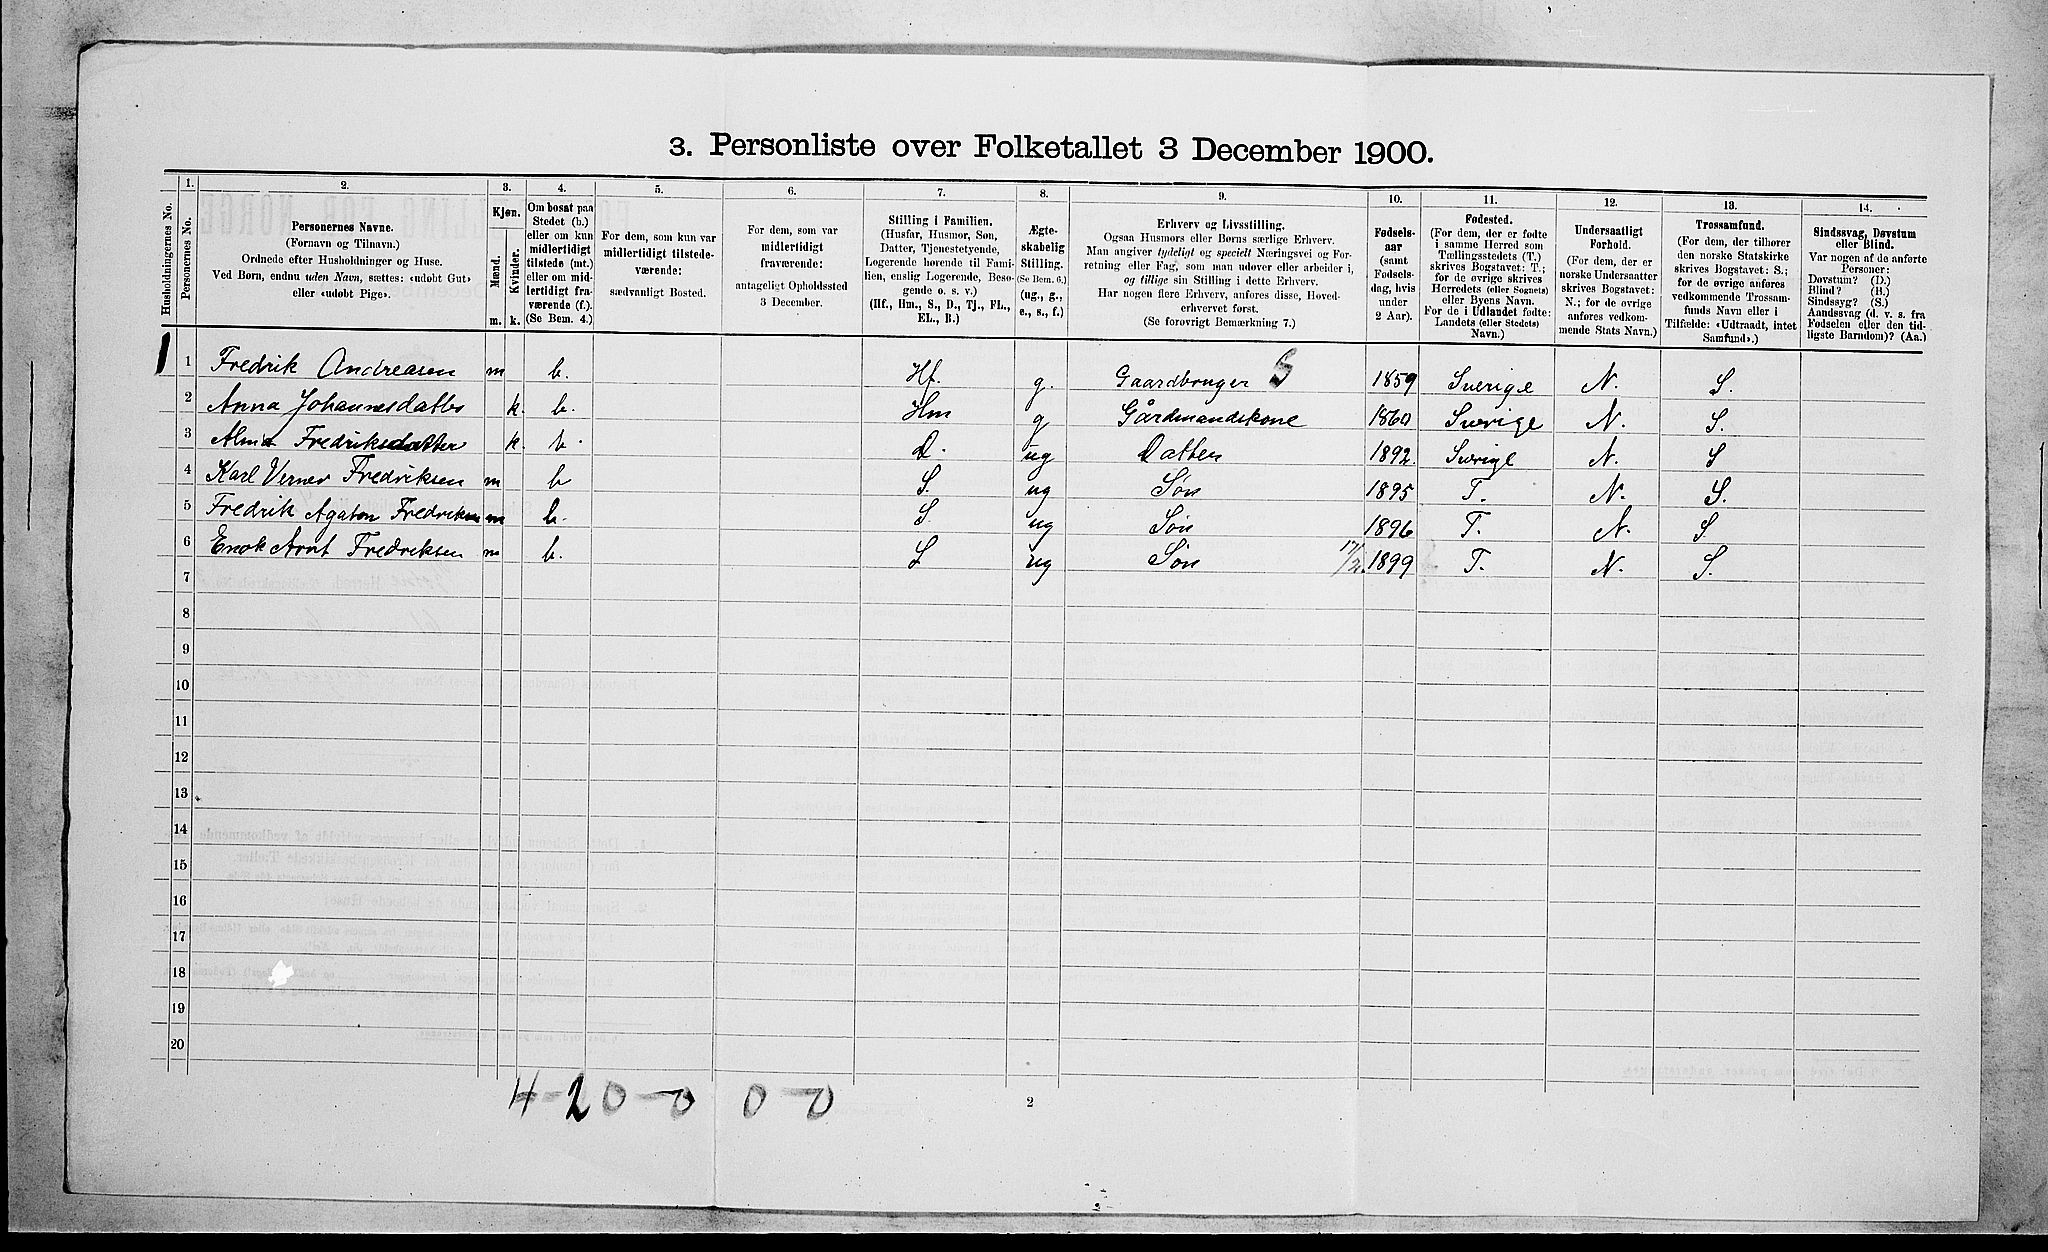 3. Personliste over Folketallet 3 December 1900.
Husholdningernes No.
1.
Personernes No.
2.
Personernes Navne.
(Fornavn og Tilnavn.)
Ordnede efter Husholdninger og Huse.
Ved Børn, endnu uden Navn, sættes: «udøbt Gut»
eller «udøbt Pige».
3.
Kjøn.
Mænd.
Kvinder.
m. k.
4.
Om bosat paa
Stedet (b.)
eller om kun
midlertidigt
tilstede (mt.)
eller om mid-
lertidigt fra-
værende (f.).
(Se Bem. 4.)
5.
For dem, som kun var
midlertidigt tilstede-
værende:
sædvanligt Bosted.
6.
For dem, som var
midlertidigt
fraværende:
antageligt Opholdssted
3 December.
7.
Stilling i Familien.
(Husfar, Husmor, Søn,
Datter, Tjenestetyende,
Logerende hørende til Fami-
lien, enslig Logerende, Besø-
gende o. s. v.)
(Hf., Hm., S., D., Tj., FL.,
EL., B.)
8.
Ægte-
skabelig
Stilling.
(Se Bem. 6.)
(ug., g.,
e., s., f.)
9.
Erhverv og Livsstilling.
Ogsaa Husmors eller Børns særlige Erhverv.
Man angiver tydeligt og specielt Næringsvei og For-
retning eller Fag, som man udøver eller arbeider i,
og tillige sin Stilling i dette Erhverv.
Har nogen flere Erhverv, anføres disse, Hoved-
erhvervet først.
(Se forøvrigt Bemærkning 7.)
10.
Fødsels-
aar
(samt
Fødsels-
dag, hvis
under
2 Aar).
11.
Fødested.
(For dem, der er fødte
i samme Herred som
Tællingsstedets (T.)
skrives Bogstavet: T.;
for de øvrige skrives
Herredets (eller Sognets)
eller Byens Navn.
For de i Udlandet fødte:
Landets (eller Stedets)
Navn.)
12.
Undersaatligt
Forhold.
(For dem, der er
norske Undersaatter
skrives Bogstavet:
N.; for de øvrige
anføres vedkom-
mende Stats Navn.)
13.
Trossamfund.
(For dem, der tilhører
den norske Statskirke
skrives Bogstavet: S.;
for de øvrige anføres
vedkommende Trossam-
funds Navn eller i
Tilfælde: «Udtraadt, intet
Samfund».)
14.
Sindssvag, Døvstum
eller Blind.
Var nogen af de anførte
Personer:
Døvstum? (D.)
Blind? (B.)
Sindssyg? (S.)
Aandssvag (d. v. s. fra
Fødselen eller den tid-
ligste Barndom)? (Aa.)
1 1 Fredrik Andreasen m b. Hf. g. Gaardbruger S 1859 Sverige N. S.
2 Anna Johannesdatter k. b. Hm g Gårdmandskone 1860 Sverige N. S.
3 Alma Fredriksdatter k. b. D. ug Datter 1892. Sverige N. S
4 Karl Verner Fredriksen m b S. ug Søn 1895 T. N. S.
5 Fredrik Agaton Fredriksen m b. S. ug Søn 1896 T. N. S.
6 Enok Arnt Fredriksen m b. S ug Søn 17/2. 1899 T. N. S.
7
8
9
10
11
12
13
14
15
16
17
18
19
20
4-2 0-0 0-0
2